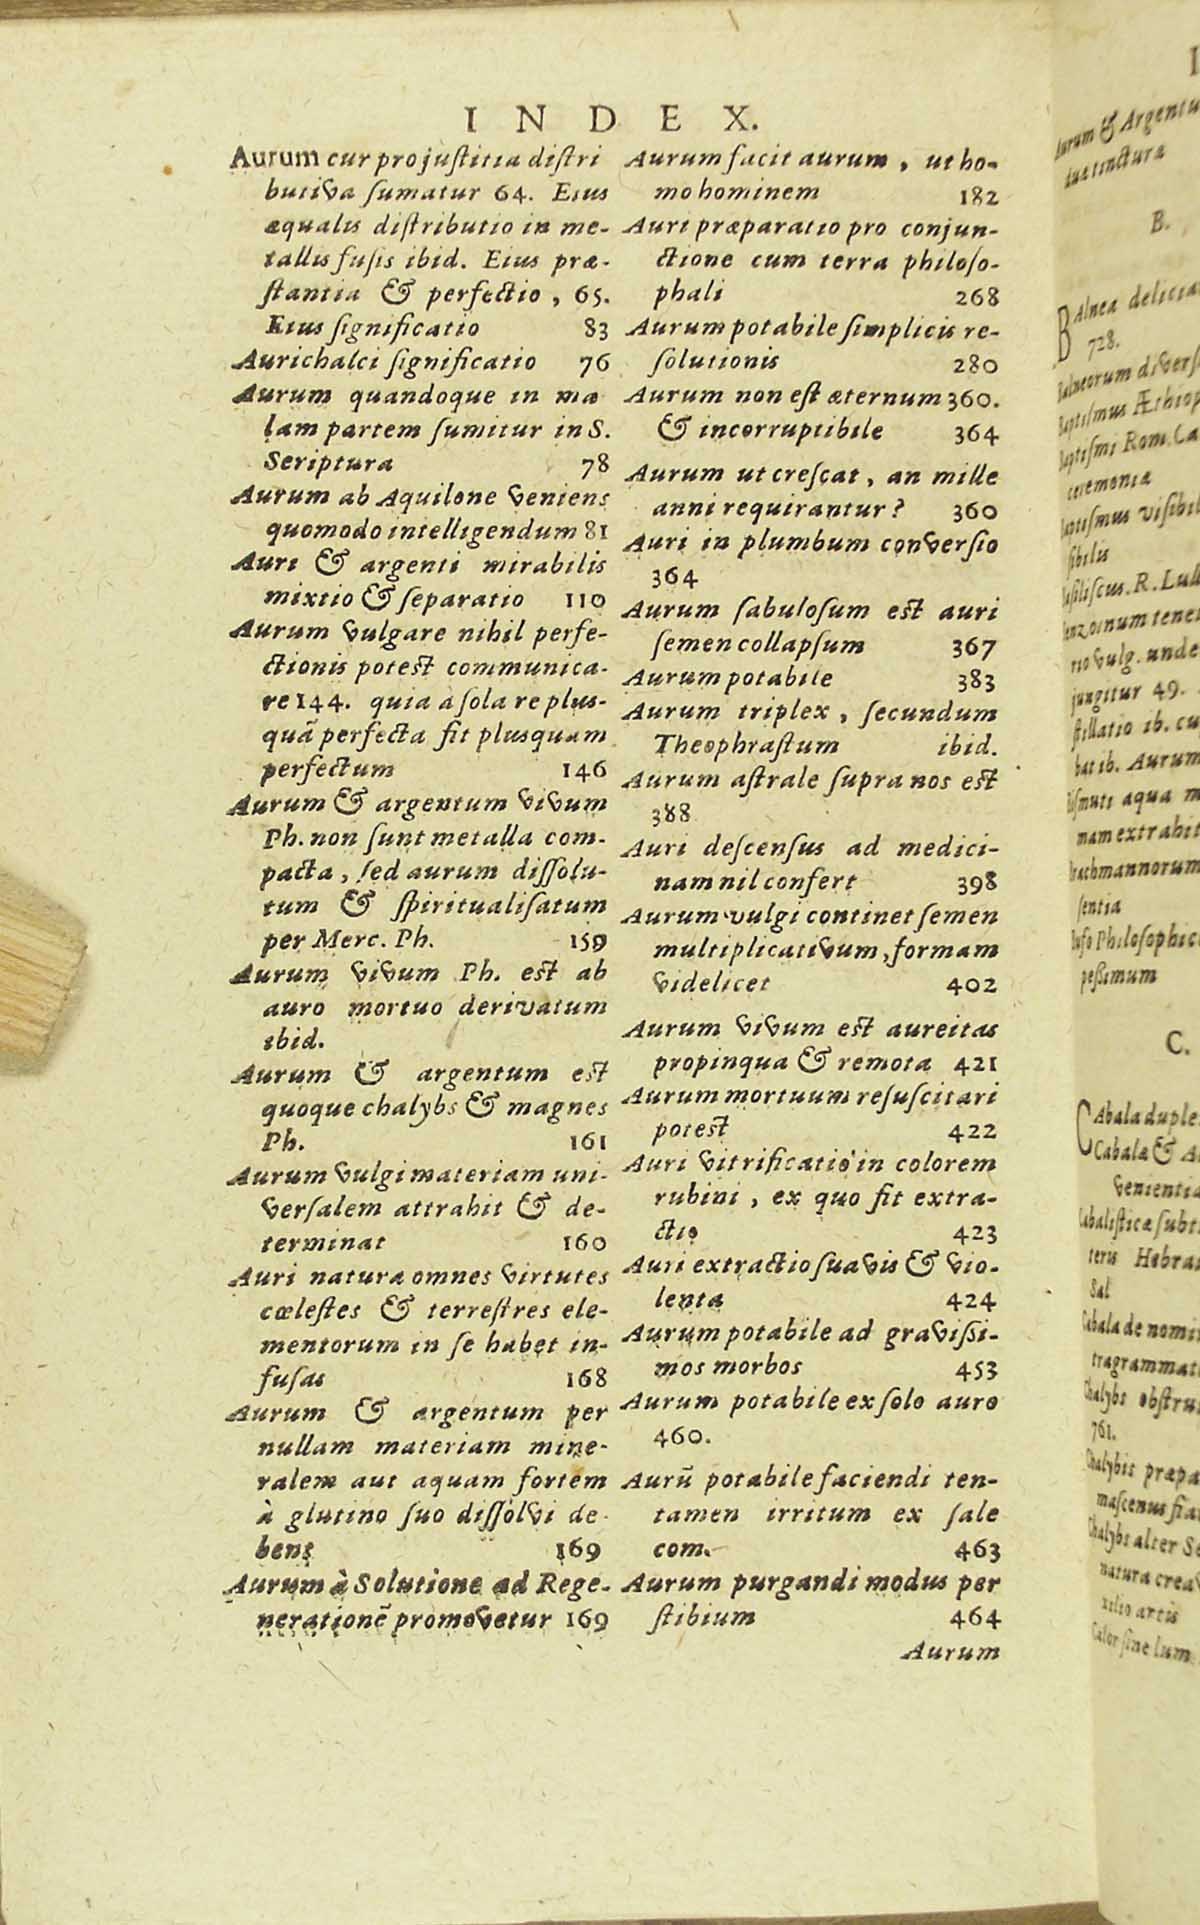 INDEX.
Aurum cur pro juſtitia diſtri
butiva ſumatur 64. Eius
æqualis diſtributio in me-
tallis fuſis ibid. Eius præ-
ſtantia & perfectio, 65.
Eius ſignificatio 83
Aurichalci ſignificatio 76
Aurum quandoque in ma
lam partem ſumitur in S.
Scriptura 78
Aurum ab Aquilone veniens
quomodo intelligendum 81
Auri & argenti mirabilis
mixtio & ſeparatio 110
Aurum vulgare nihil perfe-
ctionis potest communica-
re 144. quia à ſola re plus-
quã perfecta fit pluſquam
perfectum 146
Aurum & argentum vivum
Ph. non ſunt metalla com-
pacta, ſed aurum diſſolu-
tum & ſpiritualiſatum
per Merc. Ph. 159
Aurum vivum Ph. est ab
auro mortuo derivatum
ibid.
Aurum & argentum est
quoque chalybs & magnes
Ph. 161
Aurum vulgi materiam uni-
verſalem attrahit & de-
terminat 160
Auri natura omnes virtutes
cœleſtes & terreſtres ele-
mentorum in ſe habet in-
fuſas 168
Aurum & argentum per
nullam materiam mine-
ralem aut aquam fortem
à glutino ſuo diſſolvi de-
bent 169
Aurum à Solutione ad Rege-
nerationẽ promovetur 169
Aurum facit aurum, ut ho-
mo hominem 182
Auri præparatio pro conjun-
ctione cum terra philoſo-
phali 268
Aurum potabile ſimplicis re-
ſolutionis 280
Aurum non eſt æternum 360.
& incorruptibile 364
Aurum ut creſcat, an mille
anni requirantur? 360
Auri in plumbum converſio
364
Aurum ſabuloſum est auri
ſemen collapſum 367
Aurum potabile 383
Aurum triplex, ſecundum
Theophraſtum ibid.
Aurum aſtrale ſupra nos est
388
Auri deſcenſus ad medici-
nam nil confert 398
Aurum vulgi continet ſemen
multiplicativum, formam
videlicet 402
Aurum vivum est aureitas
propinqua & remota 421
Aurum mortuum reſuſcitari
potest 422
Auri vitrificatio in colorem
rubini, ex quo fit extra-
ctio 423
Auri extractio ſuavis & vio-
lenta 424
Aurum potabile ad graviſſi-
mos morbos 453
Aurum potabile ex ſolo auro
460.
Aurũ potabile faciendi ten-
tamen irritum ex ſale
com. 463
Aurum purgandi modus per
ſtibium 464
Aurum
I
Aurum & Argentu
dua tinctura
B.
BAlnea delicia
728.
Balneorum diverſ
Baptiſmus Æthiop
Baptiſmi Rom. Ca
ceremonia
Baptiſmus viſibil
ſibilis
Baſiliſcus. R. Lull
tenet
rio vulg. unde
jungitur 49.
ſtillatio ib. cu
bat ib. Aurum
Biſmuti aqua m
nam extrahit
Brachmannorum
ſentia
Bufo Philoſophic
peſſimum
C.
CAbala duple
Cabalæ & A
venientia
Cabaliſticæ ſubt
teris Hebra
Sal
Cabala de nomi
tragrammat
Chalybs obſtru
761.
Chalybis præpa
maſcenus fia
Chalybs alter Se
natura crea
xilio artis
Calor ſine lum